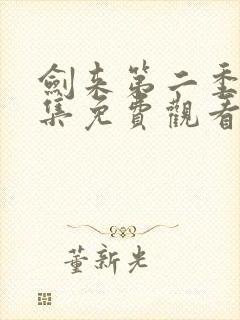 劍来第二季
集免費觀看
董新光